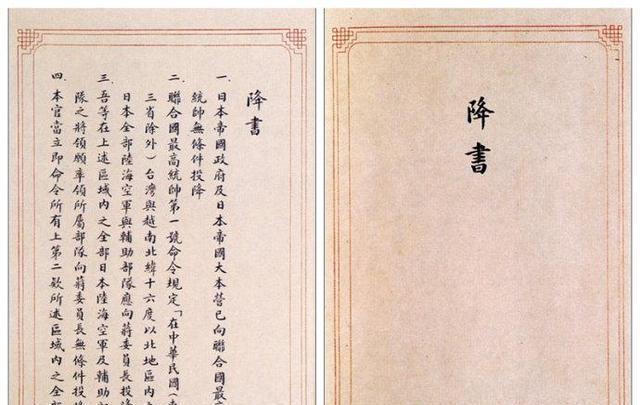 降書
降書
一、日本帝國政府及日本帝國大本營已向聯合國最高
統帥無條件投降
二、聯合國最高統帥第一號命令規定「在中華民國(東
三省除外)台灣與越南北緯十六度以北地區內之
日本全部陸海空軍與輔助部隊應向蔣委員長投降
三、吾等在上述區域內之全部日本陸海空軍及輔助部
隊之將領願率領所屬部隊向蔣委員長無條件投降
四、本官當立即命令所有上第二款所述區域內之全部